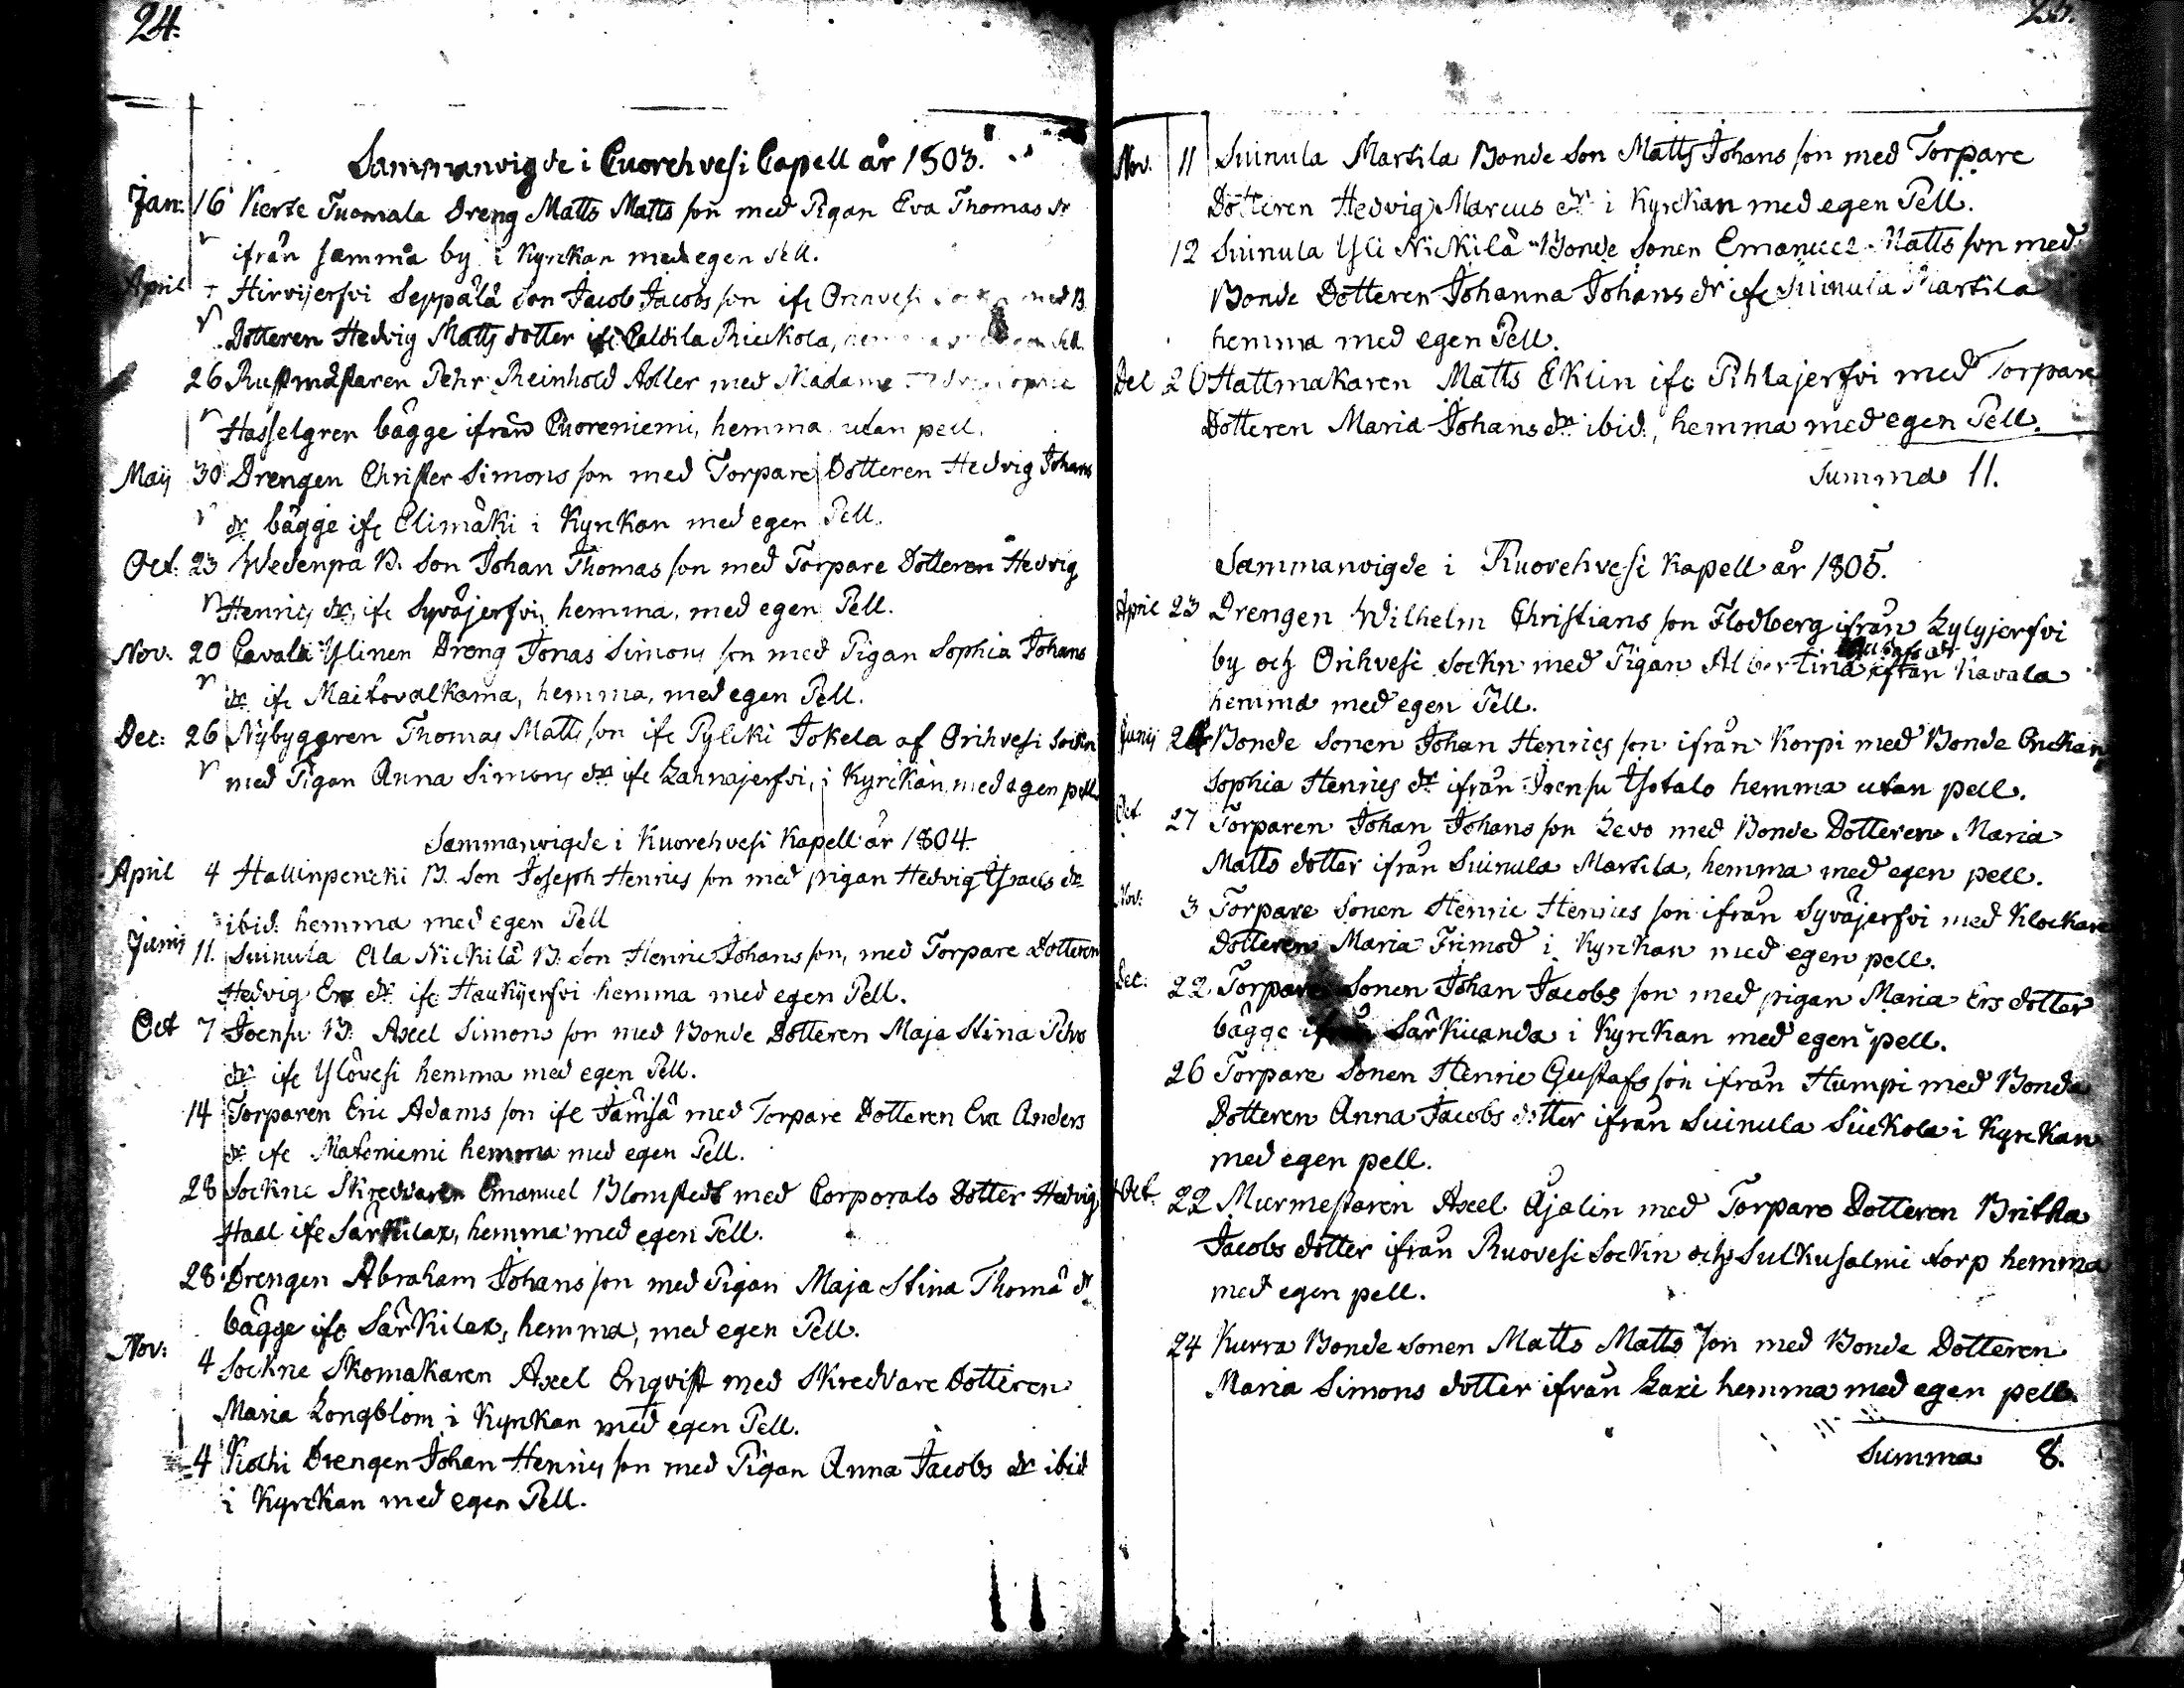 24.
Sammanvigde i Cuorehvesi Capell år 1803.
Jan: 16 Kerte Tuomala Dreng Matts Matts son med Pigan Eva Thomas dr
ifrån samma by i Kyrckan med egen Pell.
April Hirvijerfvi Seppälä Son Jacob Jacobs son ifr Orihvesi Sockn med B.
Dotteren Hedvig Matts dotter ifr Caldila Rieckola,
26 Rustmästaren Pehr Reinhold Adler med Madame
Hasselgren bägge ifrån Cuoreniemi, hemma utan pell.
Maij 30 Drengen Christer Simons son med Torpare Dotteren Hedvig Johans
dr bägge ifr Elimäki i Kyrckan med egen Pell.
Oct: 23 Wedenpä B. Son Johan Thomas son med Torpare Dotteren Hedvig
Henrics dr, ifr Syväjerfvi, hemma, med egen Pell.
Nov: 20 Cavala Ylinen Dreng Jonas Simons son med Pigan Sophia Johans
dr ifr Maitovalkama, hemma, med egen Pell.
Dec: 26 Nybyggren Thomas Matts son ifr Pylcki Jokela af Orihvesi Sockn
med Pigan Anna Simons dr ifr Lahnajerfvi, i Kyrckan, med egen pell
Sammanvigde i Kuorehvesi Kapell år 1804.
April 4 Hallinpencki B. Son Joseph Henrics son med pigan Hedvig Isacs dr
ibid: hemma med egen Pell
Junij 11. Suinula Ala Nickilä B. Son Henric Johans son, med Torpare Dotteren
Hedvig Ers dr ifr Haukijerfvi hemma med egen Pell.
Oct 7 Joensu B. Axel Simons son med Bonde Dotteren Maja Stina Pehrs
dr ifr Ylövesi hemma med egen Pell.
14 Torparen Eric Adams son ifr Jämsä med Torpare Dotteren Eva Anders
dr ifr Mateniemi hemma med egen Pell.
28 Sockne Skreddaren Emanuel Blomstedt med Corporals Dotter Hedvig
Haal ifr Särkilax, hemma med egen Pell.
28 Drengen Abraham Johans son med Pigan Maja Stina Thomæ dr
bägge ifr Särkilax, hemma, med egen Pell.
Nov: 4 Sockne Skomakaren Axel Enqvist med Skreddare Dotteren
Maria Longblom i Kyrckan med egen Pell.
4 Kochi Drengen Johan Henrics son med Pigan Anna Jacobs dr ibid
i Kyrckan med egen Pell.
Nov. 11 Suinula Martila Bonde Son Matts Johans son med Torpare
Dotteren Hedvig Marcus dr i Kyrckan med egen Pell.
12 Suinula Yli Nickilä Bonde Sonen Emanuel Matts son med
Bonde Dotteren Johanna Johans dr ifr Suinula Martila
hemma med egen Pell.
Dec 26 Hattmakaren Matts Eklin ifr Pihlajerfvi med Torpare
Dotteren Maria Johans dr ibid., hemma med egen Pell.
Summa 11.
Sammanvigde i Kuorehvesi Kapell år 1805.
April 23 Drengen Wilhelm Christians son Flodberg ifrån Lylyjerfvi
by och Orihvesi Sockn med Pigan Albertina Gustafs dr ifrån Kavala
hemma med egen Pell.
Junij 24 Bonde Sonen Johan Henrics son ifrån Korpi med Bonde Enckan
Sophia Henrics dr ifrån Joensu Isotalo hemma utan pell.
Oct 27 Torparen Johan Johans son Levo med Bonde Dotteren Maria
Matts dotter ifrån Suinula Martila, hemma med egen pell.
Nov: 3 Torpare Sonen Henric Henrics son ifrån Syväjerfvi med Klockare
Dotteren Maria Frimod i Kyrckan med egen pell.
Dec: 22 Torpare Sonen Johan Jacobs son med pigan Maria Ers dotter
bägge ifrån Särkicanda i Kyrckan med egen pell.
26 Torpare Sonen Henric Gustafs son ifrån Humpi med Bonde
Dotteren Anna Jacobs dotter ifrån Suinula Siukola i Kyrckan
med egen pell.
Oct. 22 Murmestaren Axel Ajalin med Torpare Dotteren Britha
Jacobs dotter ifrån Ruovesi Sockn och Sulkusalmi torp hemma
med egen pell.
24 Kurra Bonde Sonen Matts Matts son med Bonde Dotteren
Maria Simons dotter ifrån Laxi hemma med egen pell.
Summa 8.